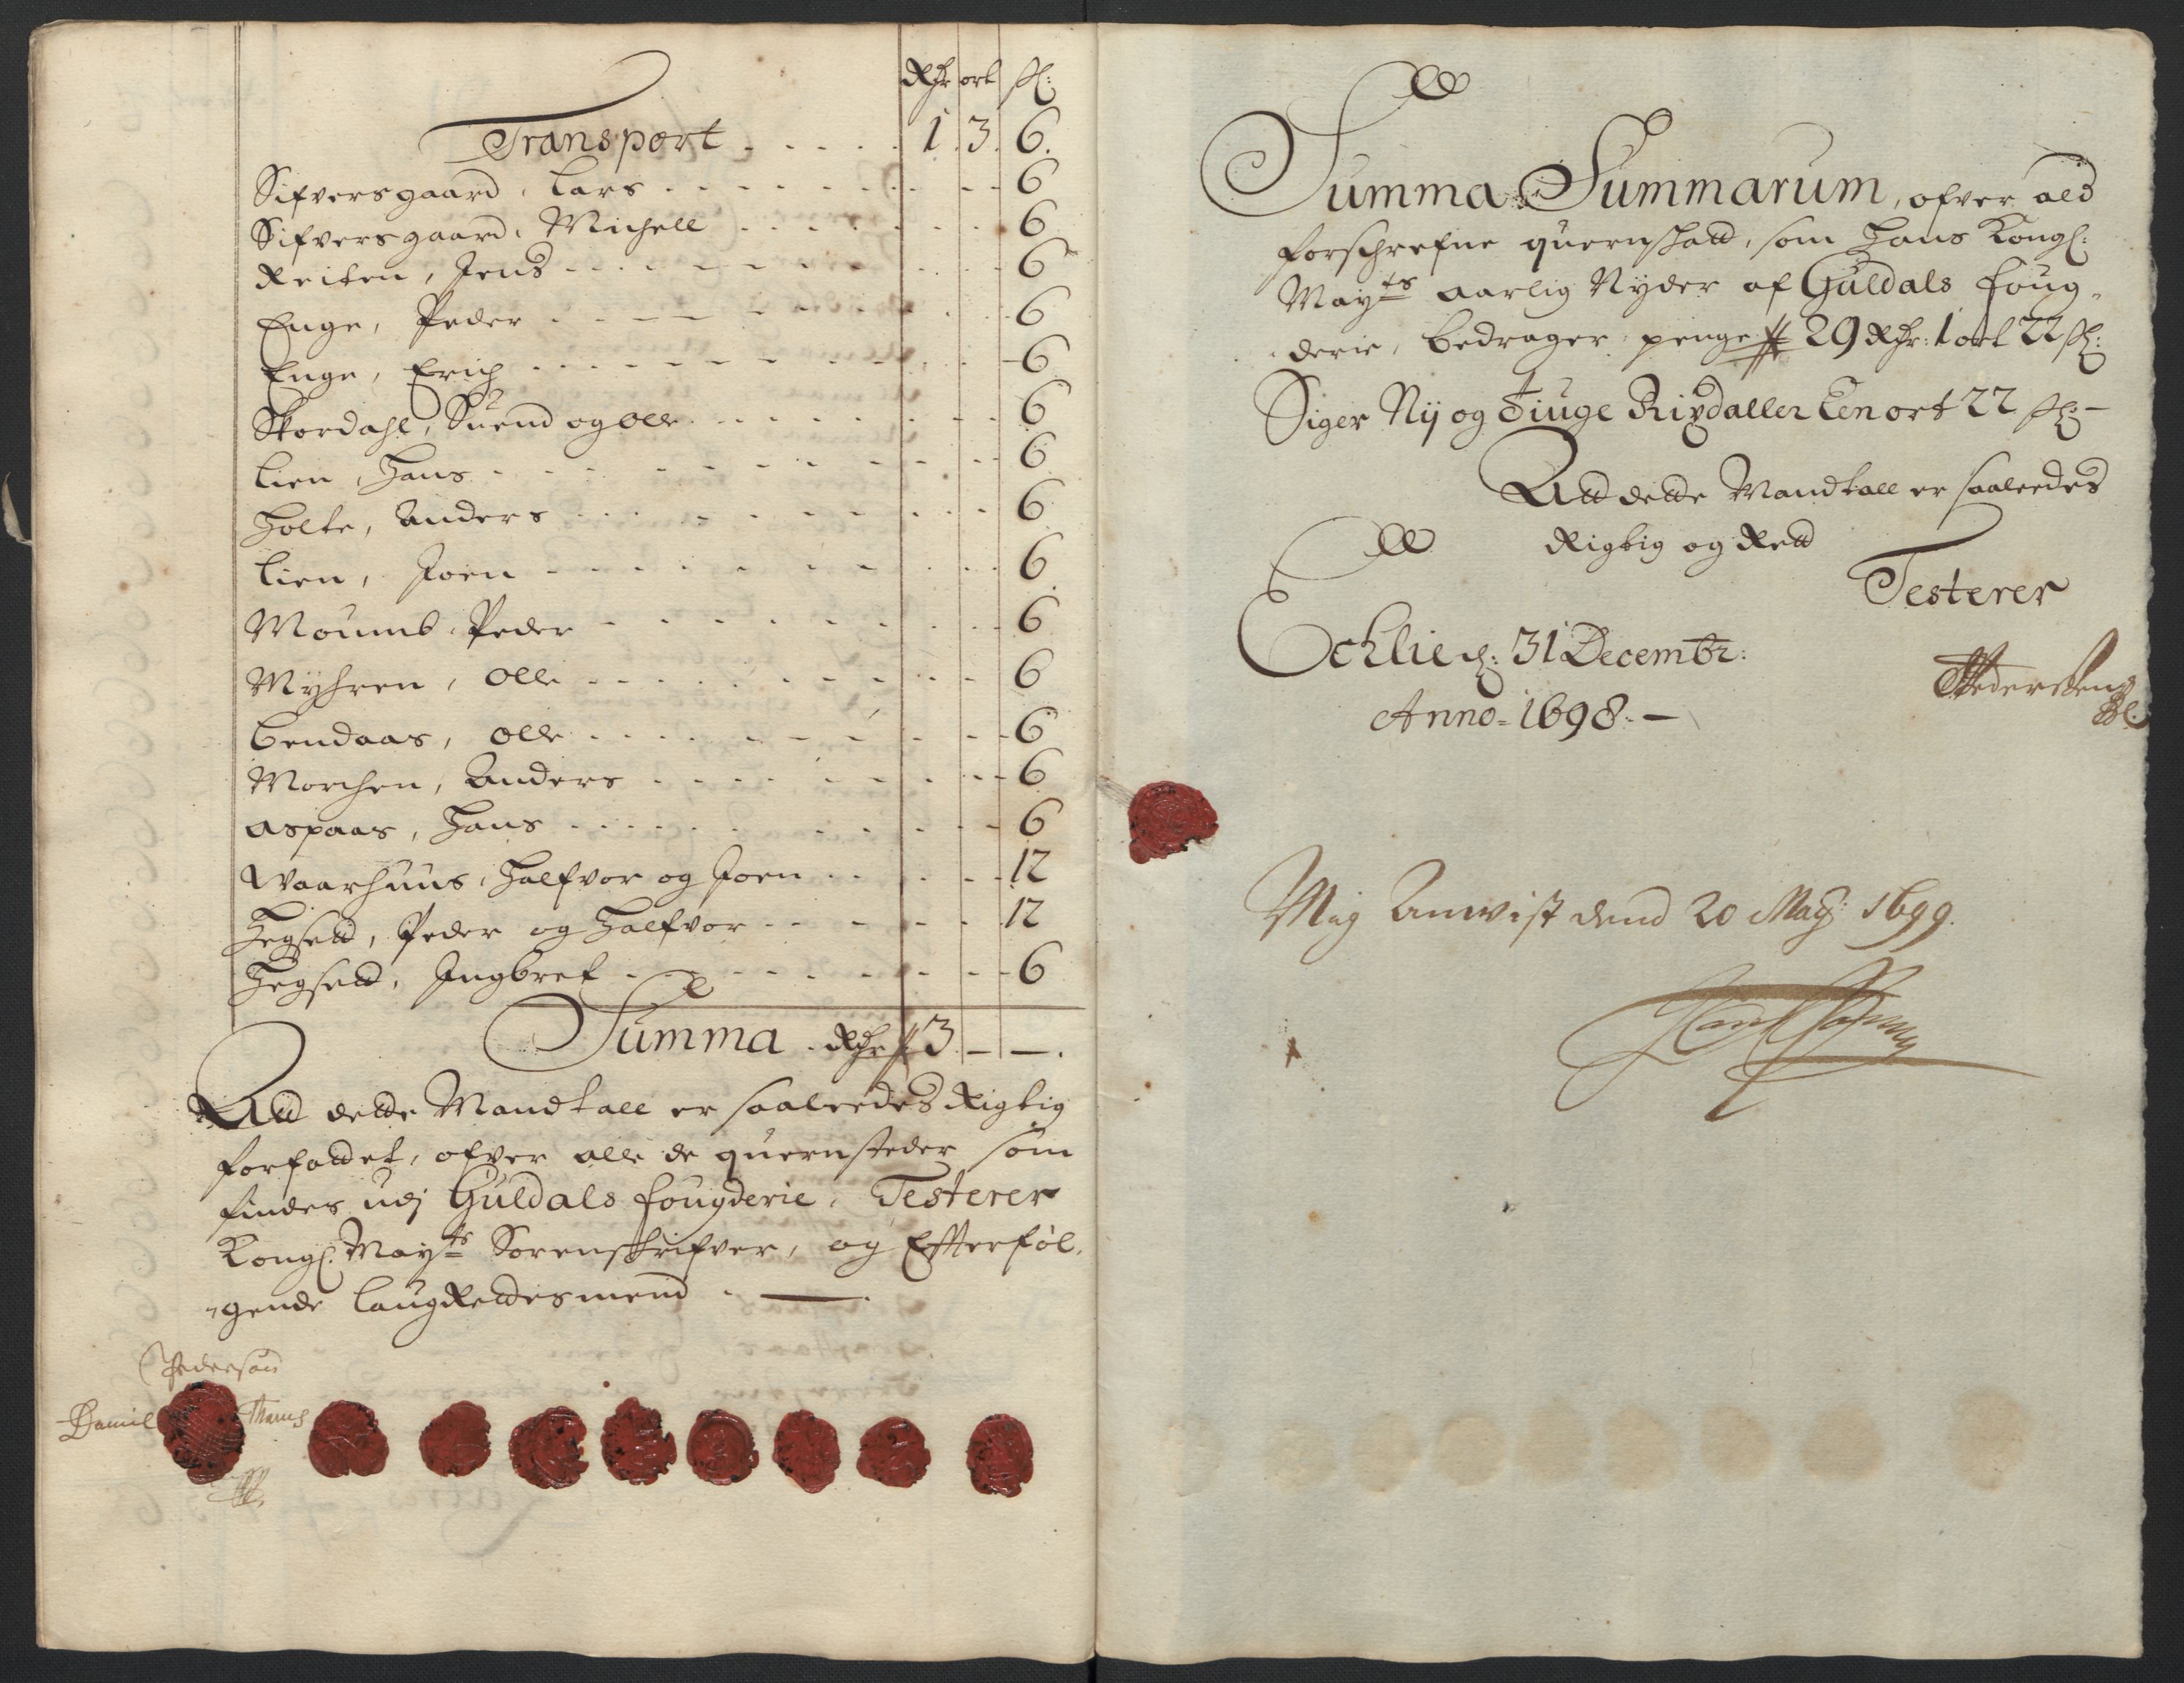 Rdr ort s:
Transport . . . . . 1. 3. 6.
Sifversgaard, Lars . . . . . . . 6
Sifversgaard, Michell . . . . . . 6
Reiten, Jens . . . . . . . 6
Enge, Peder . . . . . . . 6
Enge, Erich . . . . . . . 6
Skordahl, Suend og Olle . . . . . . 6
Lien, Hans . . . . . . . 6
Holte, Anders . . . . . . . 6
Lien, Joen . . . . . . . 6
Moumb, Peder . . . . . . . 6
Myhren, Olle . . . . . . . 6
Bendaas, Olle . . . . . . . 6
Morchen, Anders . . . . . . . 6
Aspaas, Hans . . . . . . . 6
Waarhuus, Halfvor og Joen . . . . 12
Hegsett, Peder og Halfvor . . . . 12
Hegsett, Ingbret . . . . . . . 6
Summa . Rdr 3. — — .
Att dette Mandtall er saaleedes Rigtig
forfattet, ofver alle de quernsteder som
findes udj Guldals fougderie, Testerer
Kongl. Mayts Sorenskrifver, og Efterføl,
gende LaugRettesmend . —
Pedersøn
Daniel Thams
Summa Summarum, ofver ald
forschrefne quernskatt, som Hans Kongl:
Mayts aarlig Nyder af Guldals foug,
derie, bedrager penge 29 Rdr: 1 ort 22 s:
Siger Nij og Tiuge Rixdaller Een ort 22 s: —
Att dette Mandtall er saaleedes
Rigtig og Rett
Testerer
Echlie d: 31 Decembr:
Anno= 1698: —
Mig Anvist dend 20 Maij: 1699.